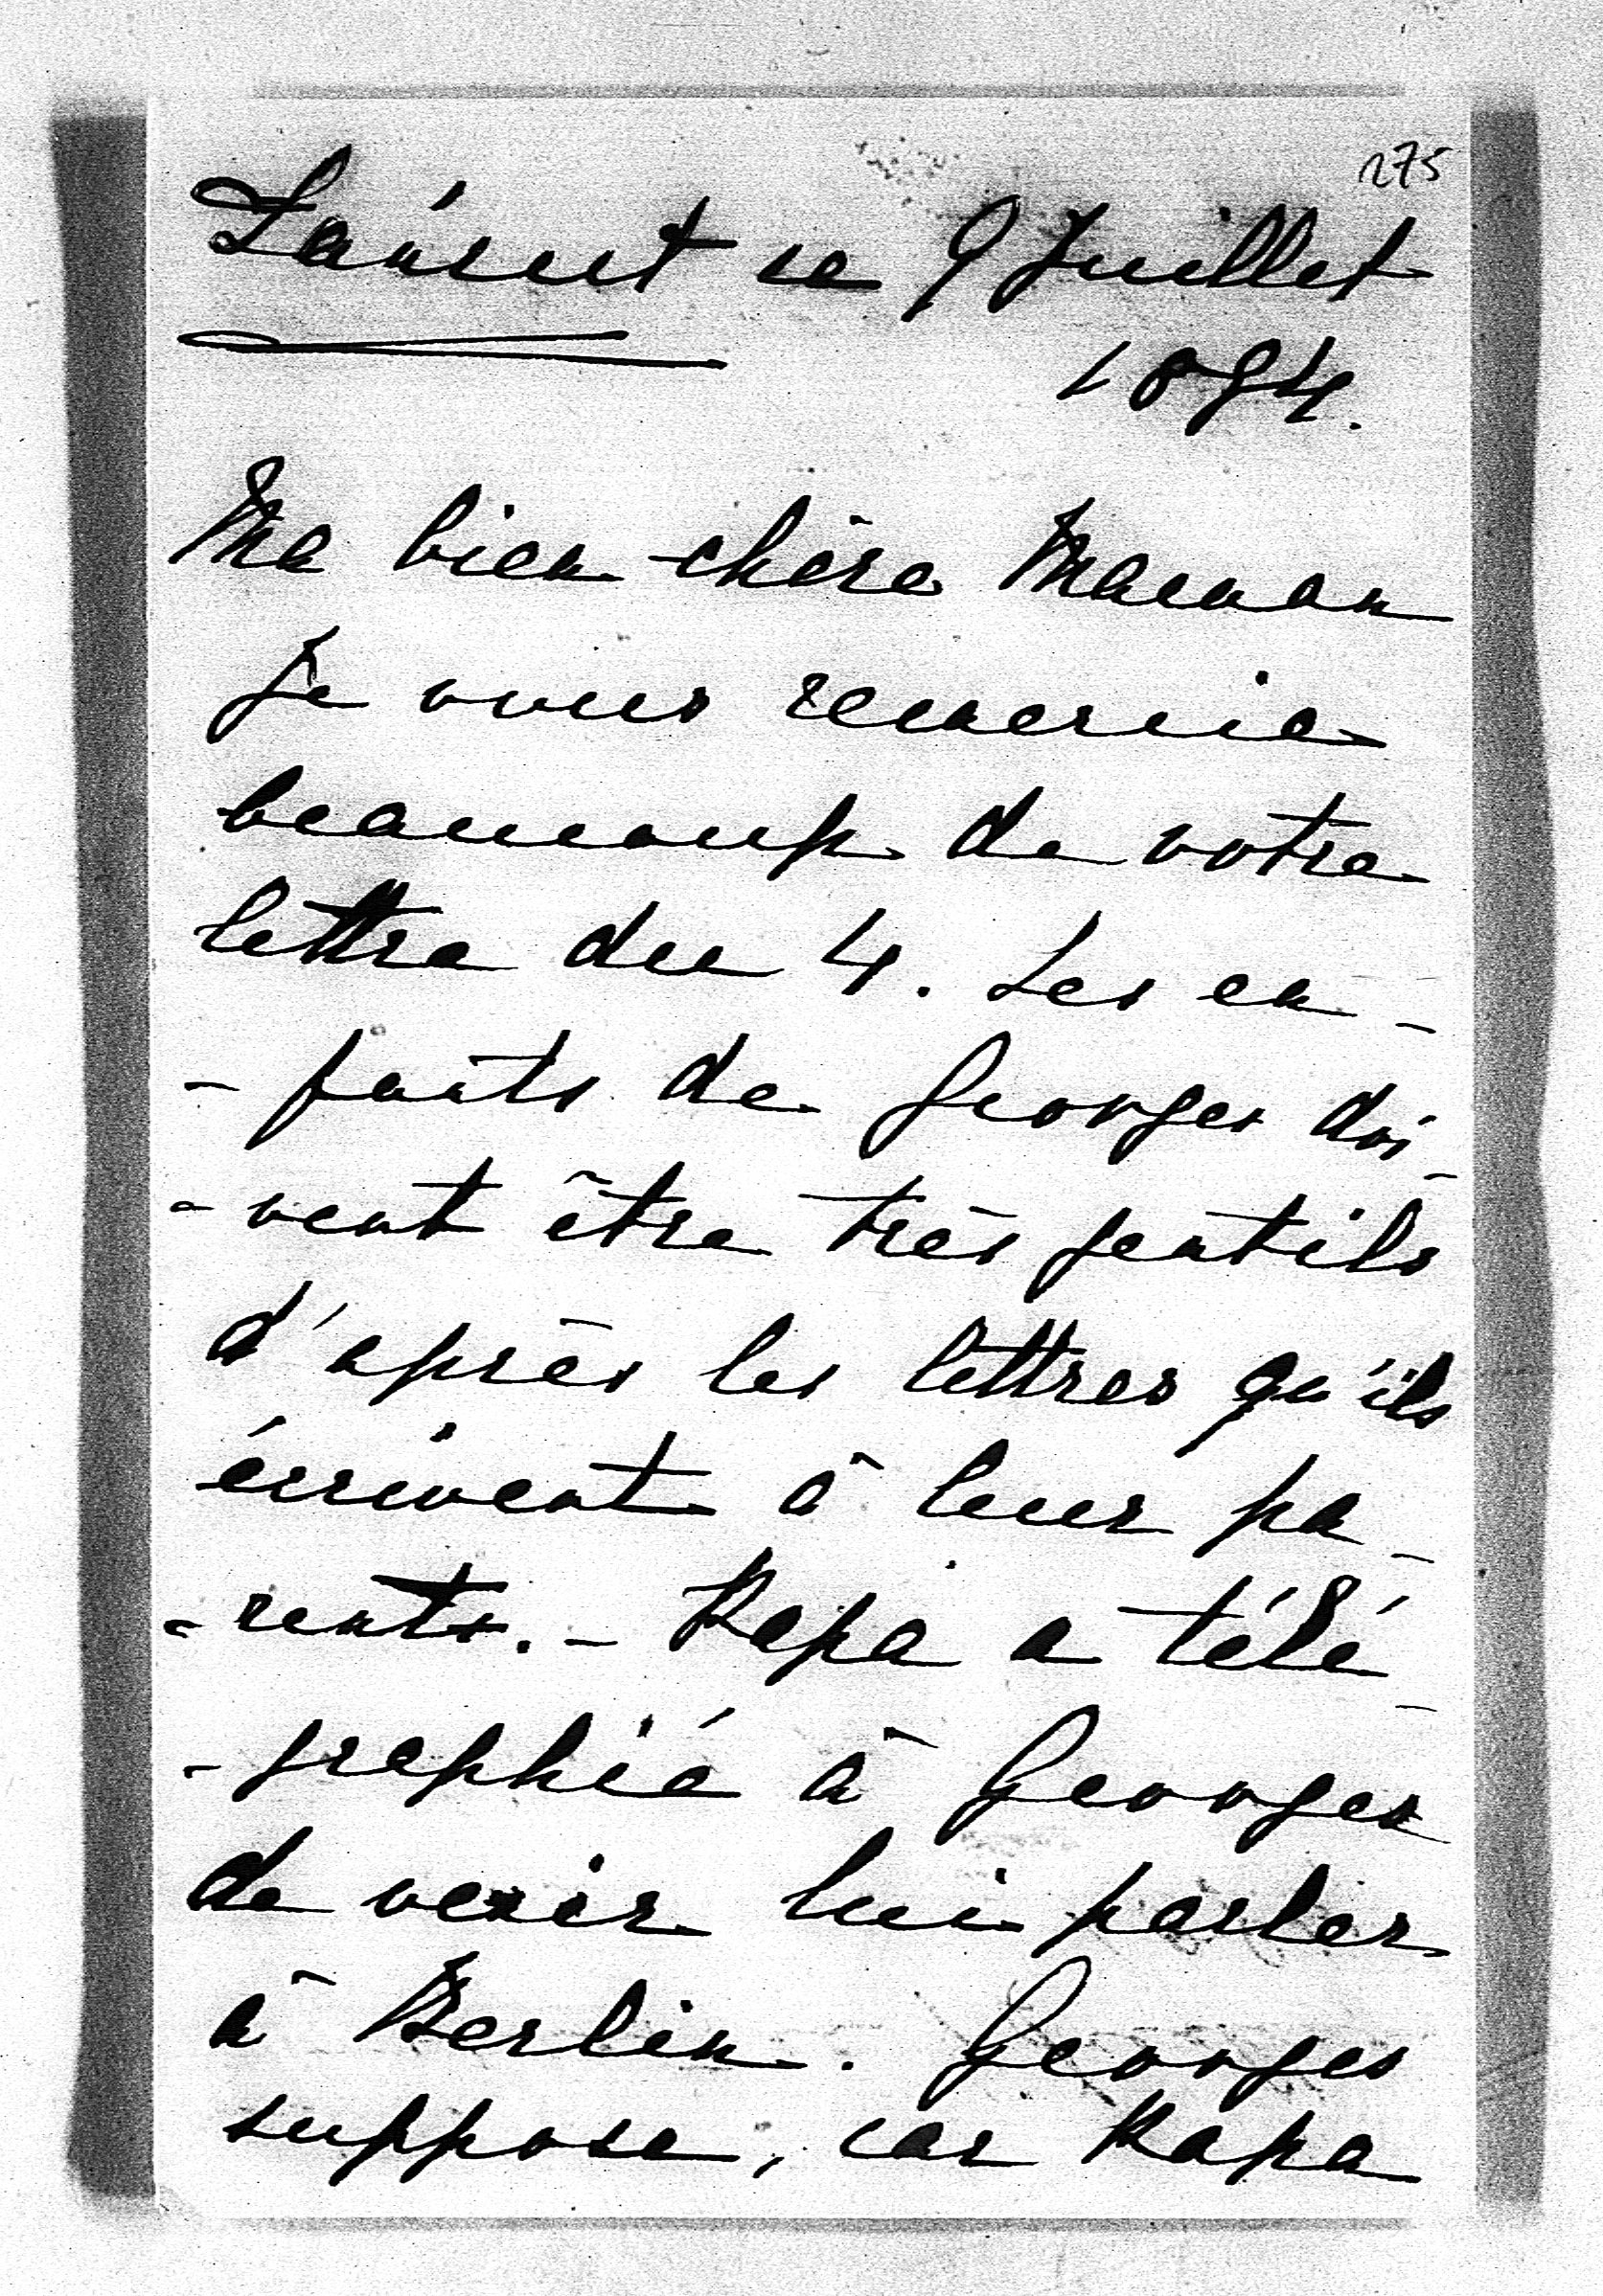 275
Lancut ce 9 Juillet
1894.
Ma bien chère Maman
Je vous remercie
beaucoup de votre
lettre du 4. Les en-
-fants de Georges doi-
-vent être très gentils
d'après les lettres qu'ils
écrivent à leur pa-
-rents. - Papa a télé-
-graphié à Georges
de venir lui parler
à Berlin. Georges
suppose, car Papa